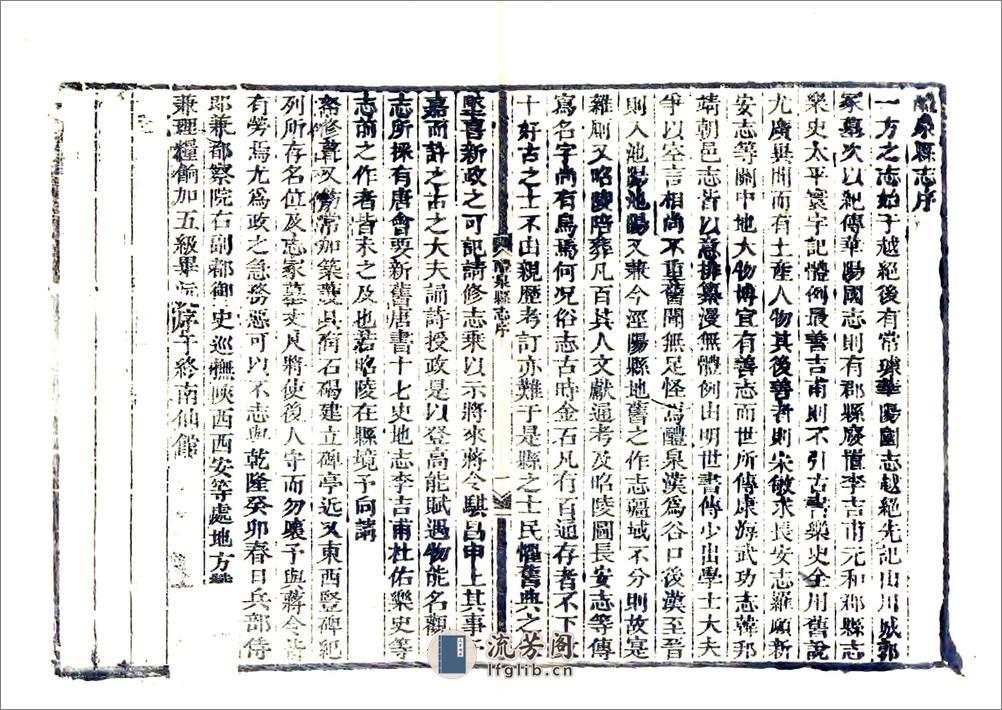 醴泉縣志序
一方之志始于越絕後有常璩華陽國志越絕先記山川城郭
冢墓次以紀傳華陽國志則有郡縣廢置李吉甫元和郡縣志
樂史太平寰宇記體例最善吉甫則不引古書樂史全用舊說
尤廣異聞而有土產人物其後善者則宋敏求長安志羅願新
安志等關中地大物博宜有善志而世所傳康海武功志韓邦
靖朝邑志皆以意排纂漫無體例由明世書傳少出學士大夫
爭以空言相尚不重舊聞無足怪焉醴泉漢爲谷口後漢至晉
則入池陽池陽又兼今涇陽縣地舊之作志疆域不分則故寔
雜廁又昭陵陪葬凡百其人文獻通考及昭陵圖長安志等傳
寫名字尚有烏焉何况俗志古時金石凡有百通存者不下二
十好古之士不由親歷考訂亦難于是縣之士民懼舊典之
醴泉縣志序
墜喜新政之可記請修志乘以示將來蔣令騏昌申上其事予
嘉而許之古之大夫誦詩授政是以登高能賦遇物能名觀
志所採有唐會要新舊唐書十七史地志李吉甫杜佑樂史等
志前之作者皆未之及也若昭陵在縣境予向請
帑修葺又嘗加築護具有石碣建立碑亭近又東西豎碑紀
列所存名位及志冢墓丈尺將使後人守而勿壞予與蔣令皆
有勞焉尤爲政之急務惡可以不志與乾隆癸卯春日兵部侍
郎兼都察院右副都御史巡撫陝西西安等處地方贊
兼理糧餉加五級畢沅序于終南仙館
流芳阁
lfglib.cn